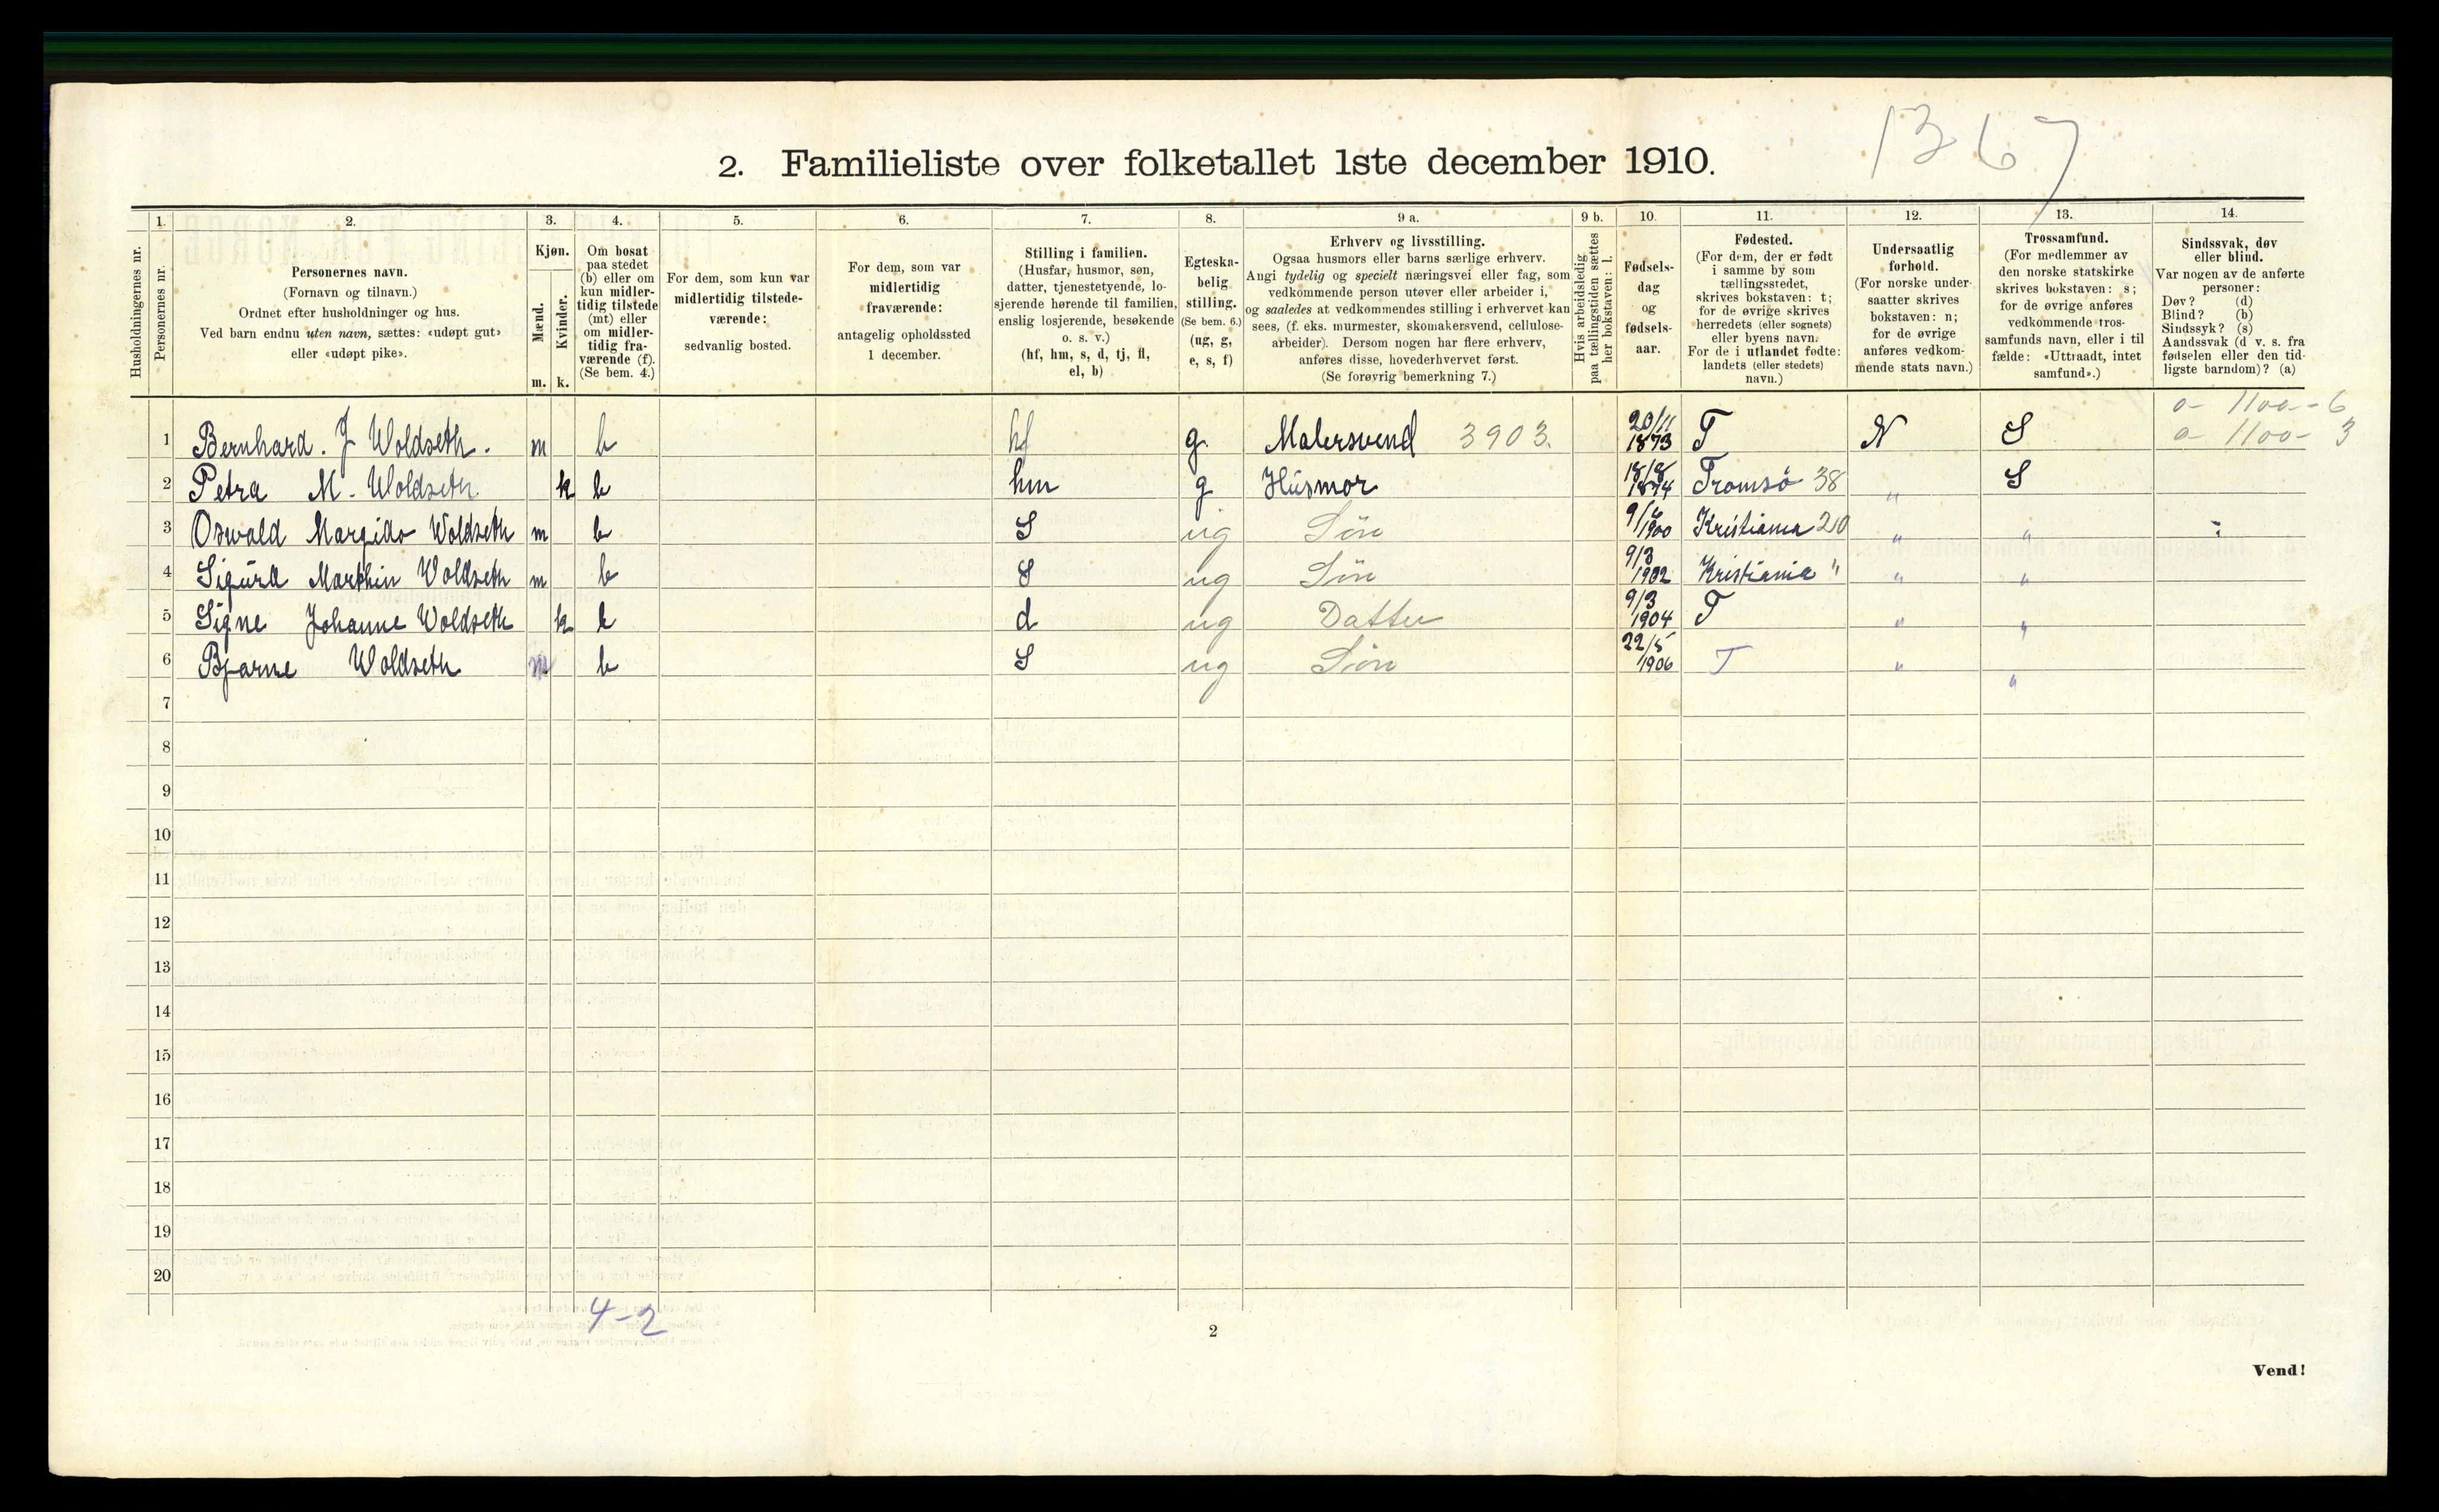 1367
2. Familieliste over folketallet 1ste december 1910.
1. 2. 3. 4. 5. 6. 7. 8. 9 a. 9 b. 10. 11. 12. 13. 14.
Husholdningernes nr.
Personernes nr.
Personernes navn.
(Fornavn og tilnavn.)
Ordnet efter husholdninger og hus.
Ved barn endnu uten navn, sættes: «udøpt gut»
eller «udøpt pike».
Kjøn.
Mænd.
Kvinder.
m. k.
Om bosat
paa stedet
(b) eller om
kun midler-
tidig tilstede
(mt) eller
om midler-
tidig fra-
værende (f).
(Se bem. 4.)
For dem, som kun var
midlertidig tilstede-
værende:
sedvanlig bosted.
For dem, som var
midlertidig
fraværende:
antagelig opholdssted
1 december.
Stilling i familien.
(Husfar, husmor, søn,
datter, tjenestetyende, lo-
sjerende hørende til familien,
enslig losjerende, besøkende
o. s. v.)
(hf, hm, s, d, tj, fl,
el, b)
Egteska-
belig
stilling.
(Se bem. 6.)
(ug, g,
e, s, f)
Erhverv og livsstilling.
Ogsaa husmors eller barns særlige erhverv.
Angi tydelig og specielt næringsvei eller fag, som
vedkommende person utøver eller arbeider i,
og saaledes at vedkommendes stilling i erhvervet kan
sees, (f. eks. murmester, skomakersvend, cellulose-
arbeider). Dersom nogen har flere erhverv,
anføres disse, hovederhvervet først.
(Se forøvrig bemerkning 7.)
Hvis arbeidsledig
paa tællingstiden sættes
her bokstaven: l.
Fødsels-
dag
og
fødsels-
aar.
Fødested.
(For dem, der er født
i samme by som
tællingsstedet,
skrives bokstaven: t;
for de øvrige skrives
herredets (eller sognets)
eller byens navn.
For de i utlandet fødte:
landets (eller stedets)
navn.)
Undersaatlig
forhold.
(For norske under-
saatter skrives
bokstaven: n;
for de øvrige
anføres vedkom-
mende stats navn.)
Trossamfund.
(For medlemmer av
den norske statskirke
skrives bokstaven: s;
for de øvrige anføres
vedkommende tros-
samfunds navn, eller i til
fælde: «Uttraadt, intet
samfund».)
Sindssvak, døv
eller blind.
Var nogen av de anførte
personer:
Døv? (d)
Blind? (b)
Sindssyk? (s)
Aandssvak (d v. s. fra
fødselen eller den tid-
ligste barndom)? (a)
0- 1100-6
1 Bernhard. J Woldseth. m b hf g. Malersvend 3903. 20/11 1873 T N S 0- 1100- 3
2 Petra M. Woldseth k b hm g Husmor 18/8 1874 Tromsö 38 " S
3 Oswald Margido Woldseth m b S ug Sön 1900 Kristiania 20 " "
4 Sigurd Marthin Woldseth m b S ug Sön 9/3 1902 Kristiania " " "
5 Signe Johanne Woldseth k b d ug Datter 9/3 1904 T " "
6 Bjarne Woldseth m b S ug Sön 22/5 1906 T " "
7
8
9
10
11
12
13
14
15
16
17
18
19
20
4-2
2
Vend!